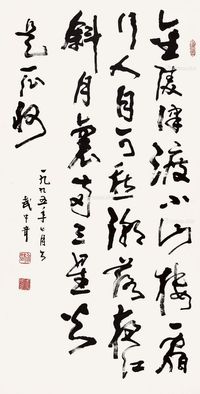 金陵津渡小山樓一宿
行人自可愁潮落夜江
斜月裏兩三星火
是瓜洲
一九九五年七月書
武中奇